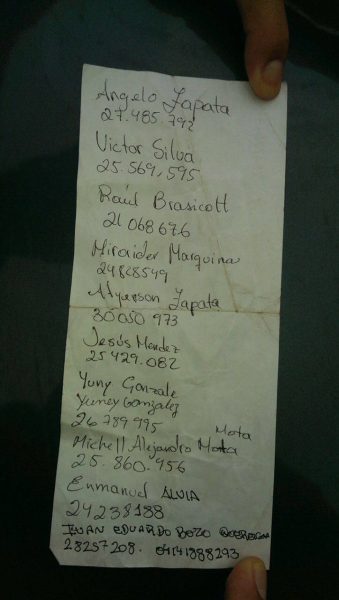 Angelo Zapata
27.485.792
Victor Silva
25.569,595
Raúl Brasicott
21 068 676
Miraider Marquina
24868549
Alyerson Zapata
30 050 973
Jesús Mendez
25 429.082
Yuny Gonzale
Yuney Gonzalez
26 789 995
Mota
Michell Alejandro Mota
25.860.956
Enmanuel ALVIA
24238188
IVAN EDUARDO BOZO
28257208. 04141888293